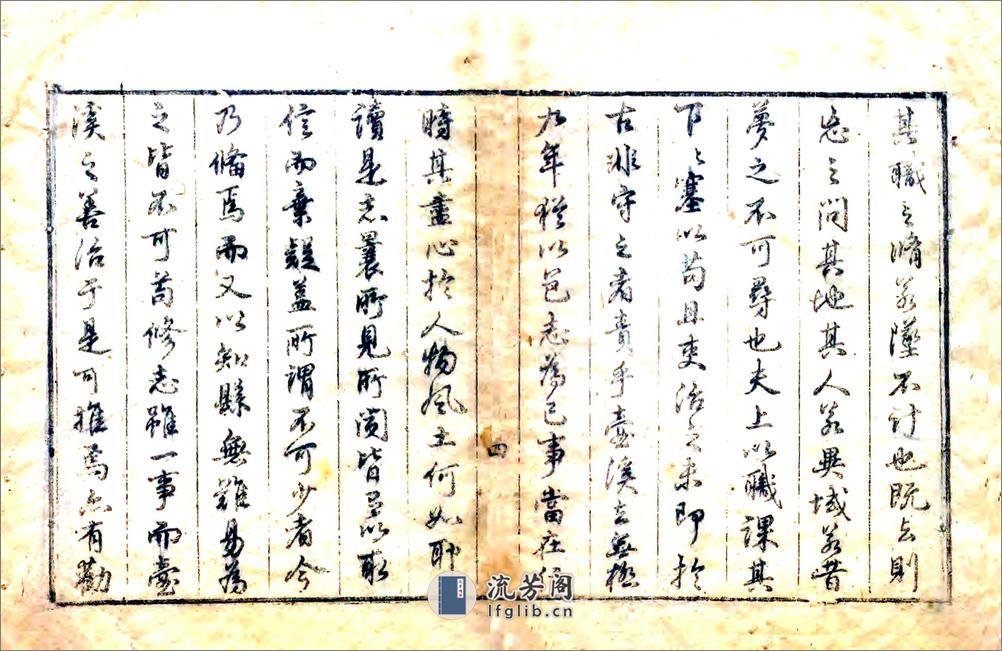 其職之脩若墜不計也既去則
忘之問其地其人若異域若昔
夢之不可尋也夫上以職課其
下下塞以苟且吏治之未即於
古非守之者責乎臺溪去無極
九年猶以邑志為己事當在位
時其盡心於人物風土何如耶
讀是志曩所見所聞皆足以取
信而棄疑蓋所謂不可少者今
乃脩焉而又以知縣無難易為
之皆不可苟修志雖一事而臺
溪之善治于是可推焉亦有勸
四
流芳阁
lfglib.cn